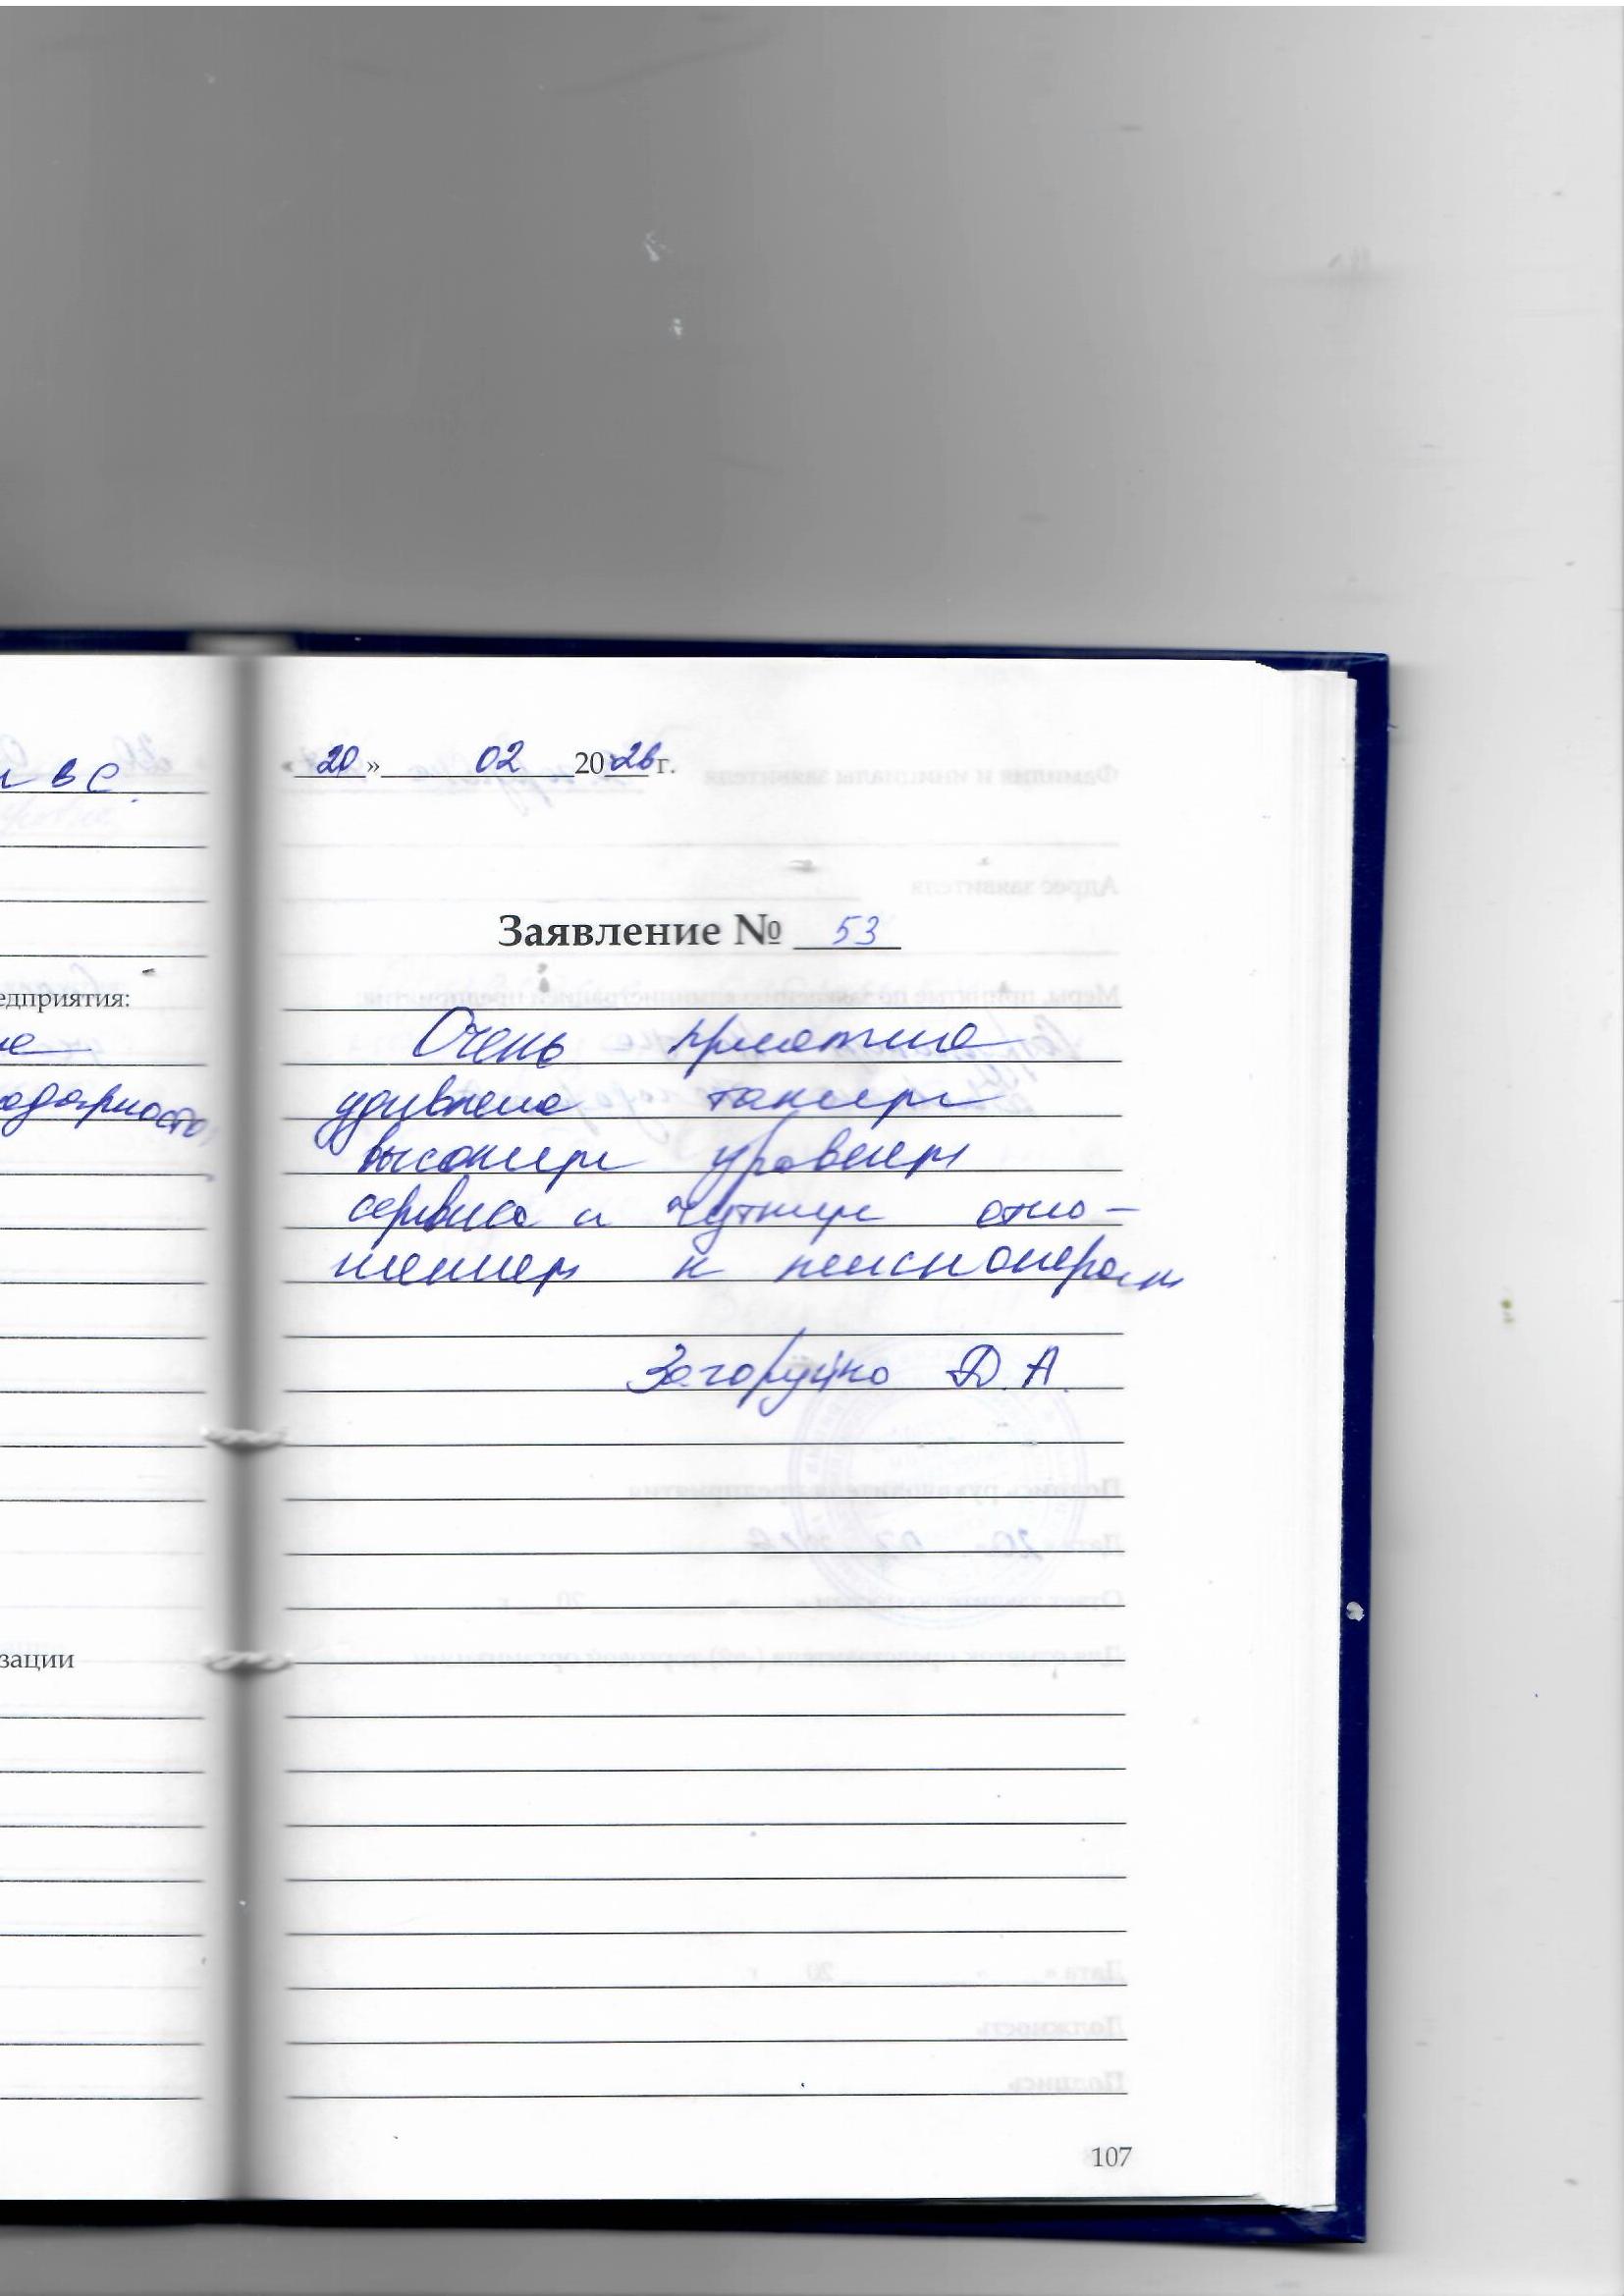 в С.
едприятия:
зации
« 20 » 02 2026 г.
Заявление № 53
Очень приятно
удивлена таким
высоким уровнем
сервиса и чутким отно-
шением к пенсионерам
Загоруйко Д. А.
107